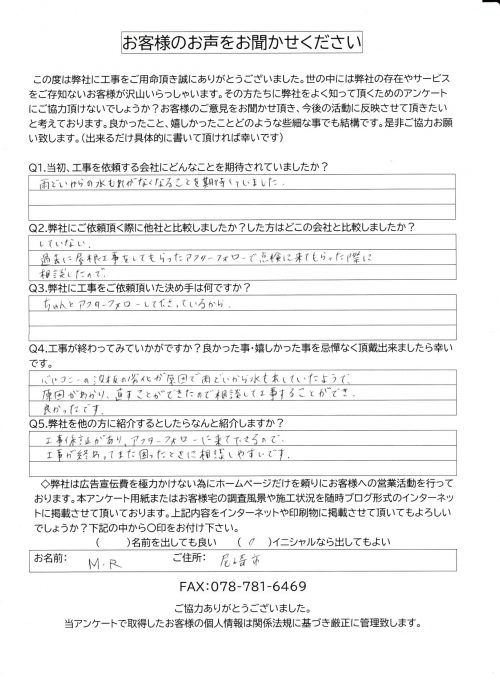 お客様のお声をお聞かせください
この度は弊社に工事をご用命頂き誠にありがとうございました。世の中には弊社の存在やサービス
をご存知ないお客様が沢山いらっしゃいます。その方たちに弊社をよく知って頂くためのアンケート
にご協力頂けないでしょうか？お客様のご意見をお聞かせ頂き、今後の活動に反映させて頂きたい
と考えております。良かったこと、嬉しかったことどのような些細な事でも結構です。是非ご協力お願
い致します。（出来るだけ具体的に書いて頂ければ幸いです）
Q1.当初、工事を依頼する会社にどんなことを期待されていましたか？
雨どいからの水もれがなくなることを期待していました.
Q2.弊社にご依頼頂く際に他社と比較しましたか？した方はどこの会社と比較しましたか？
していない.
過去に屋根工事をしてもらったアフターフォローで点検に来てもらった際に
相談したので.
Q3.弊社に工事をご依頼頂いた決め手は何ですか？
ちゃんとアフターフォローして下さっているから.
Q4.工事が終わってみていかがですか？良かった事・嬉しかった事を忌憚なく頂戴出来ましたら幸い
です。
バルコニーの波板の劣化が原因で雨どいから水もれしていたようで、
原因がわかり、直すことができたので相談して工事することができ.
良かったです.
Q5.弊社を他の方に紹介するとしたらなんと紹介しますか？
工事保証があり、アフターフォローに来て下さるので.
工事が終わってまた困ったときに相談しやすいです.
◇弊社は広告宣伝費を極力かけない為にホームページだけを頼りにお客様への営業活動を行って
おります。本アンケート用紙またはお客様宅の調査風景や施工状況を随時ブログ形式のインターネッ
トに掲載させて頂いております。上記内容をインターネットや印刷物に掲載させて頂いてもよろしい
でしょうか？下記の中から〇印をお付け下さい。
（　）名前を出しても良い （〇）イニシャルなら出してもよい
お名前： M.R ご住所： 尼崎市
FAX:078-781-6469
ご協力ありがとうございました。
当アンケートで取得したお客様の個人情報は関係法規に基づき厳正に管理致します。